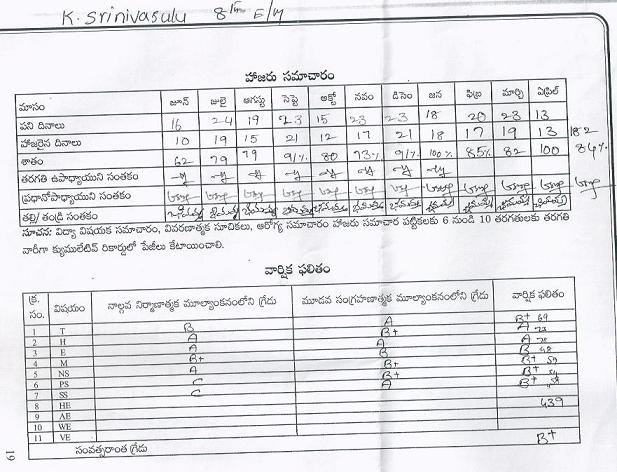 K. Srinivasulu 8th E/M
హాజరు సమాచారం
మాసం జూన్ జులై ఆగస్టు సెప్టె అక్టో నవం డిసెం జన ఫిబ్ర మార్చి ఏప్రిల్
పని దినాలు 16 24 19 23 15 23 23 18 20 23 13
హాజరైన దినాలు 10 19 15 21 12 17 21 18 17 19 13 182
శాతం 62 79 79 91% 80 73% 91% 100% 85% 82 100 84%
తరగతి ఉపాధ్యాయుని సంతకం
ప్రధానోపాధ్యాయుని సంతకం
తల్లి/ తండ్రి సంతకం
సూచన: విద్యా విషయక సమాచారం, వివరణాత్మక సూచికలు, ఆరోగ్య సమాచారం హాజరు సమాచార పట్టికలకు 6 నుండి 10 తరగతులకు తరగతి
వారీగా క్యుములేటివ్ రికార్డులో పేజీలు కేటాయించాలి.
వార్షిక ఫలితం
క్ర. సం. విషయం నాల్గవ నిర్మాణాత్మక మూల్యాంకనంలోని గ్రేడు మూడవ సంగ్రహణాత్మక మూల్యాంకనంలోని గ్రేడు వార్షిక ఫలితం
1 T B A B+ 69
2 H A B+ A
3 E A A A
4 M B+ B B
5 NS A A B+
6 PS C B+ B+
7 SS C A B+
8 HE 439
9 AE
10 WE
11 VE
సంవత్సరాంత గ్రేడు B+
19